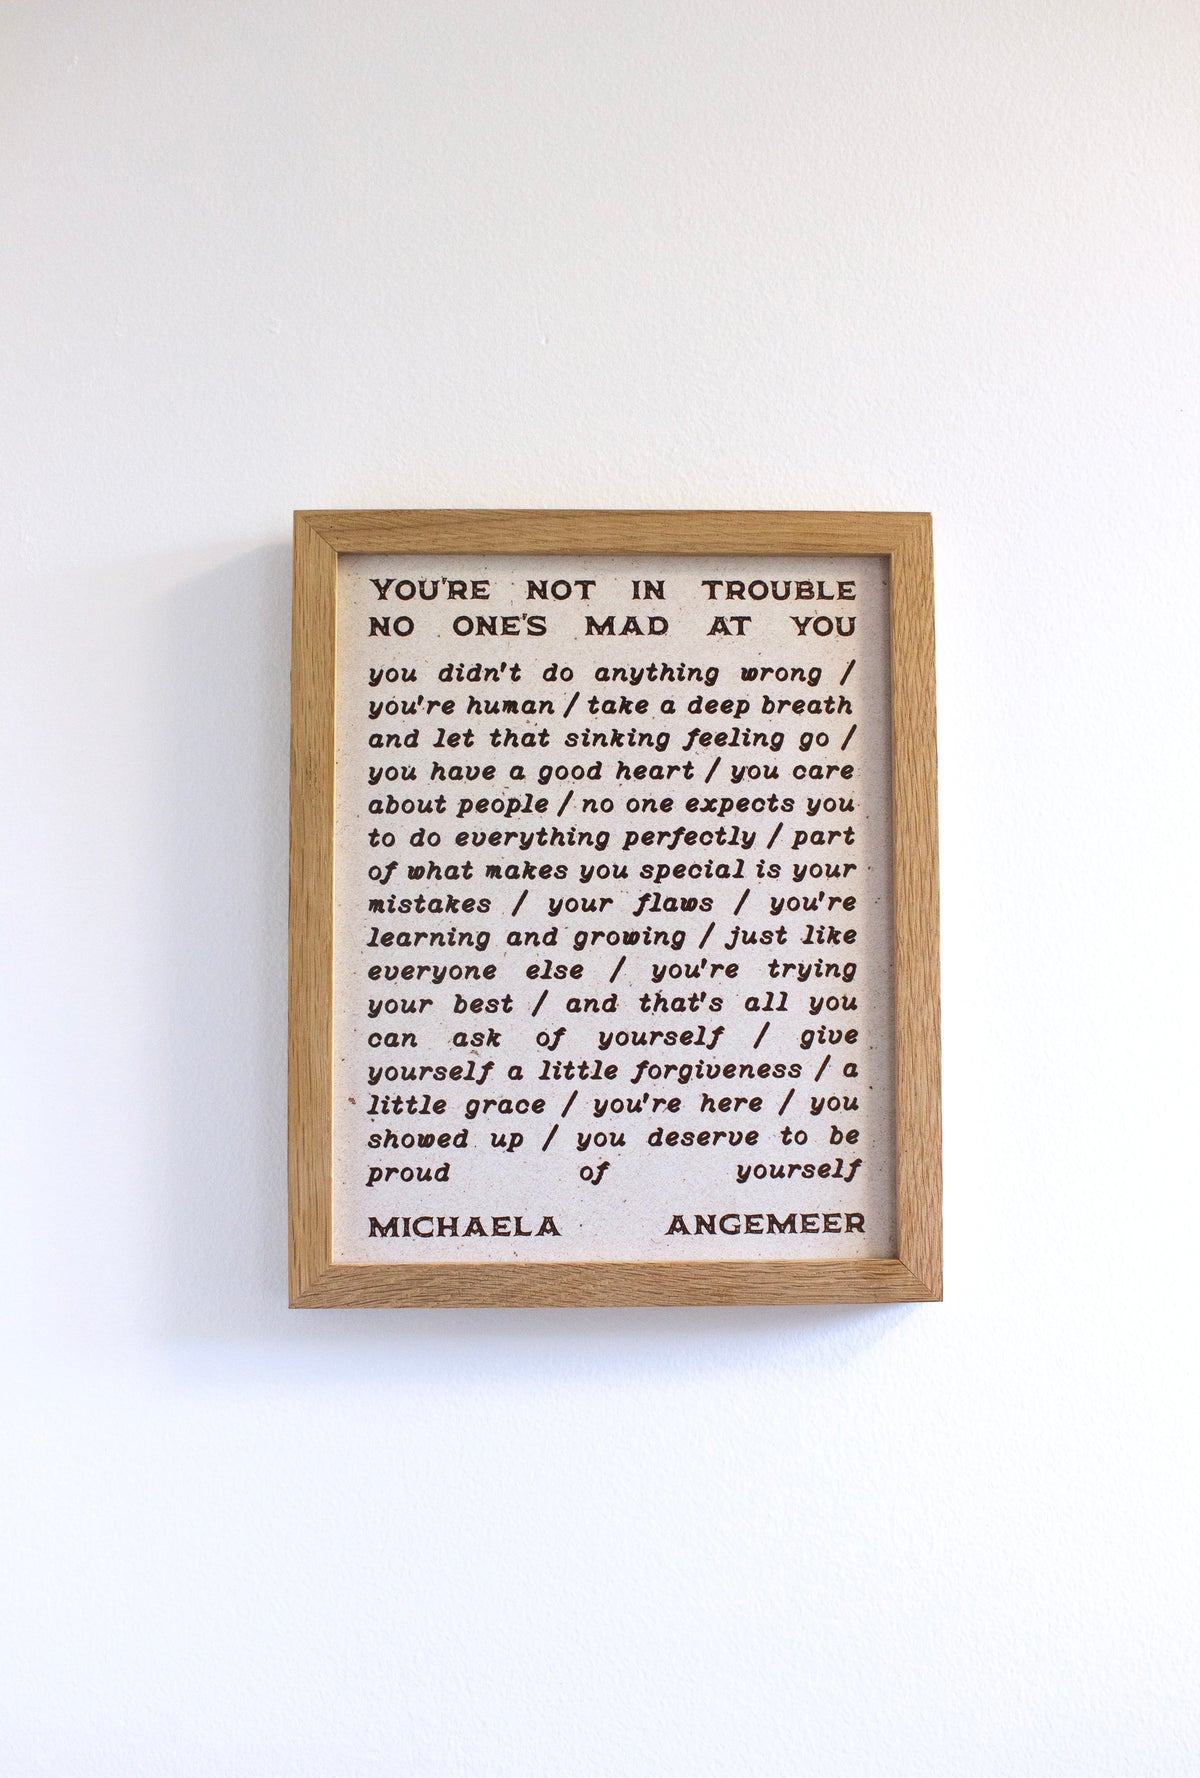 YOU'RE NOT IN TROUBLE
NO ONE'S MAD AT YOU
you didn't do anything wrong /
you're human / take a deep breath
and let that sinking feeling go /
you have a good heart / you care
about people / no one expects you
to do everything perfectly / part
of what makes you special is your
mistakes / your flaws / you're
learning and growing / just like
everyone else / you're trying
your best / and that's all you
can ask of yourself / give
yourself a little forgiveness / a
little grace / you're here / you
showed up / you deserve to be
proud of yourself
MICHAELA ANGEMEER